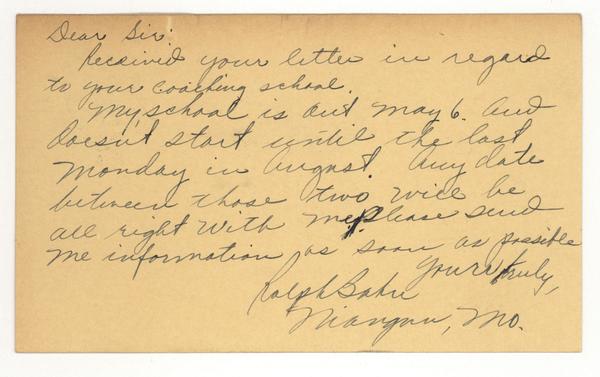 Dear Sir:
Received your letter in regard
to your coaching school.
My school is out May 6. And
doesn't start until the last
Monday in August. Any date
between those two will be
all right with me. Please send
me information as soon as possible
Yours truly,
Ralph
Niangua, Mo.